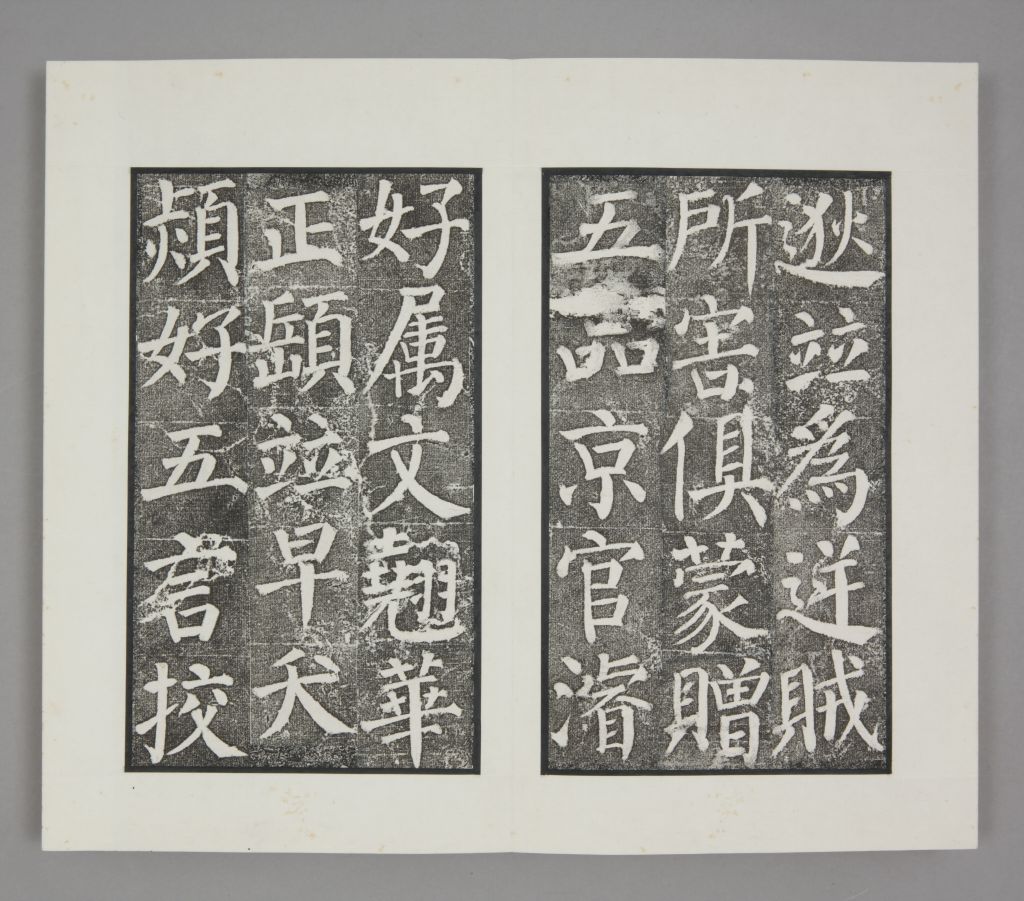 逖竝為逆賊
所害俱蒙贈
五品京官濬
好属文翹華
正頤竝早夭
熲好五言挍